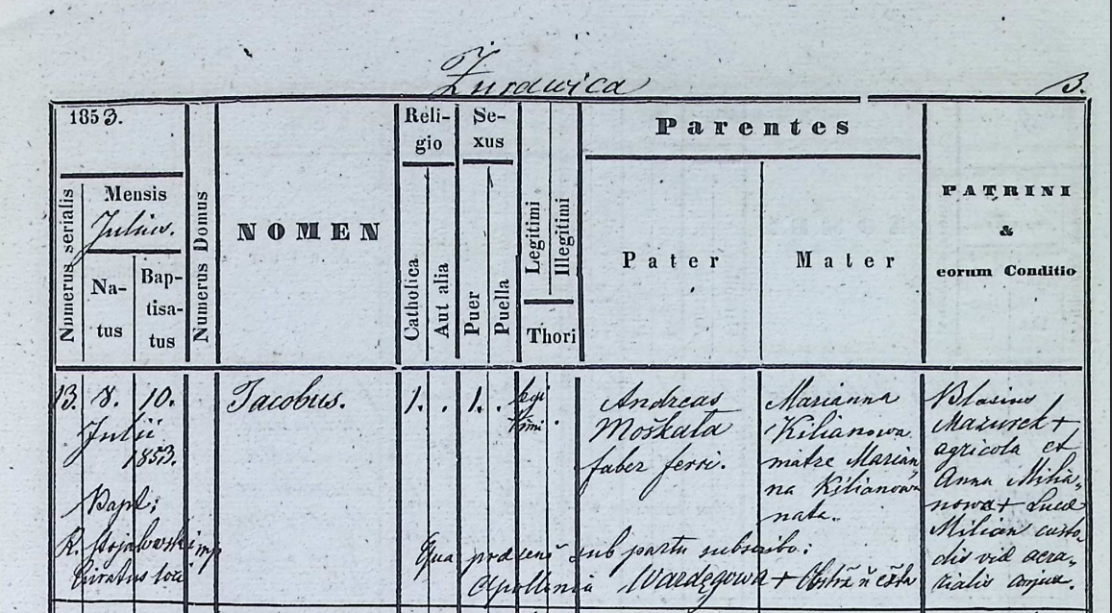 Żurawica
3.
1853.
Numerus serialis
Mensis
Julius.
Na-
tus
Bap-
tisa-
tus
Numerus Domus
NOMEN
Reli-
gio
Catholica
Aut alia
Se-
xus
Puer
Puella
Legitimi
Illegitimi
Thori
Parentes
Pater
Mater
PATRINI
&
eorum Conditio
13. 8. 10.
Julii
1853.
Bapt:
Curatus loci
Jacobus.
1. . 1. . legi
timi .
Andreas
Moskała
faber ferri.
Marianna
Kilianowa
matre Marian
na Kilianowa
nata.
Blasius
Mazurek +
agricola et
Anna Milia-
nowa + Luca
Milian custo
dis viæ aera-
rialis conjux.
Qua præsens sub partu subscribo:
Apollonia Wardęgowa +